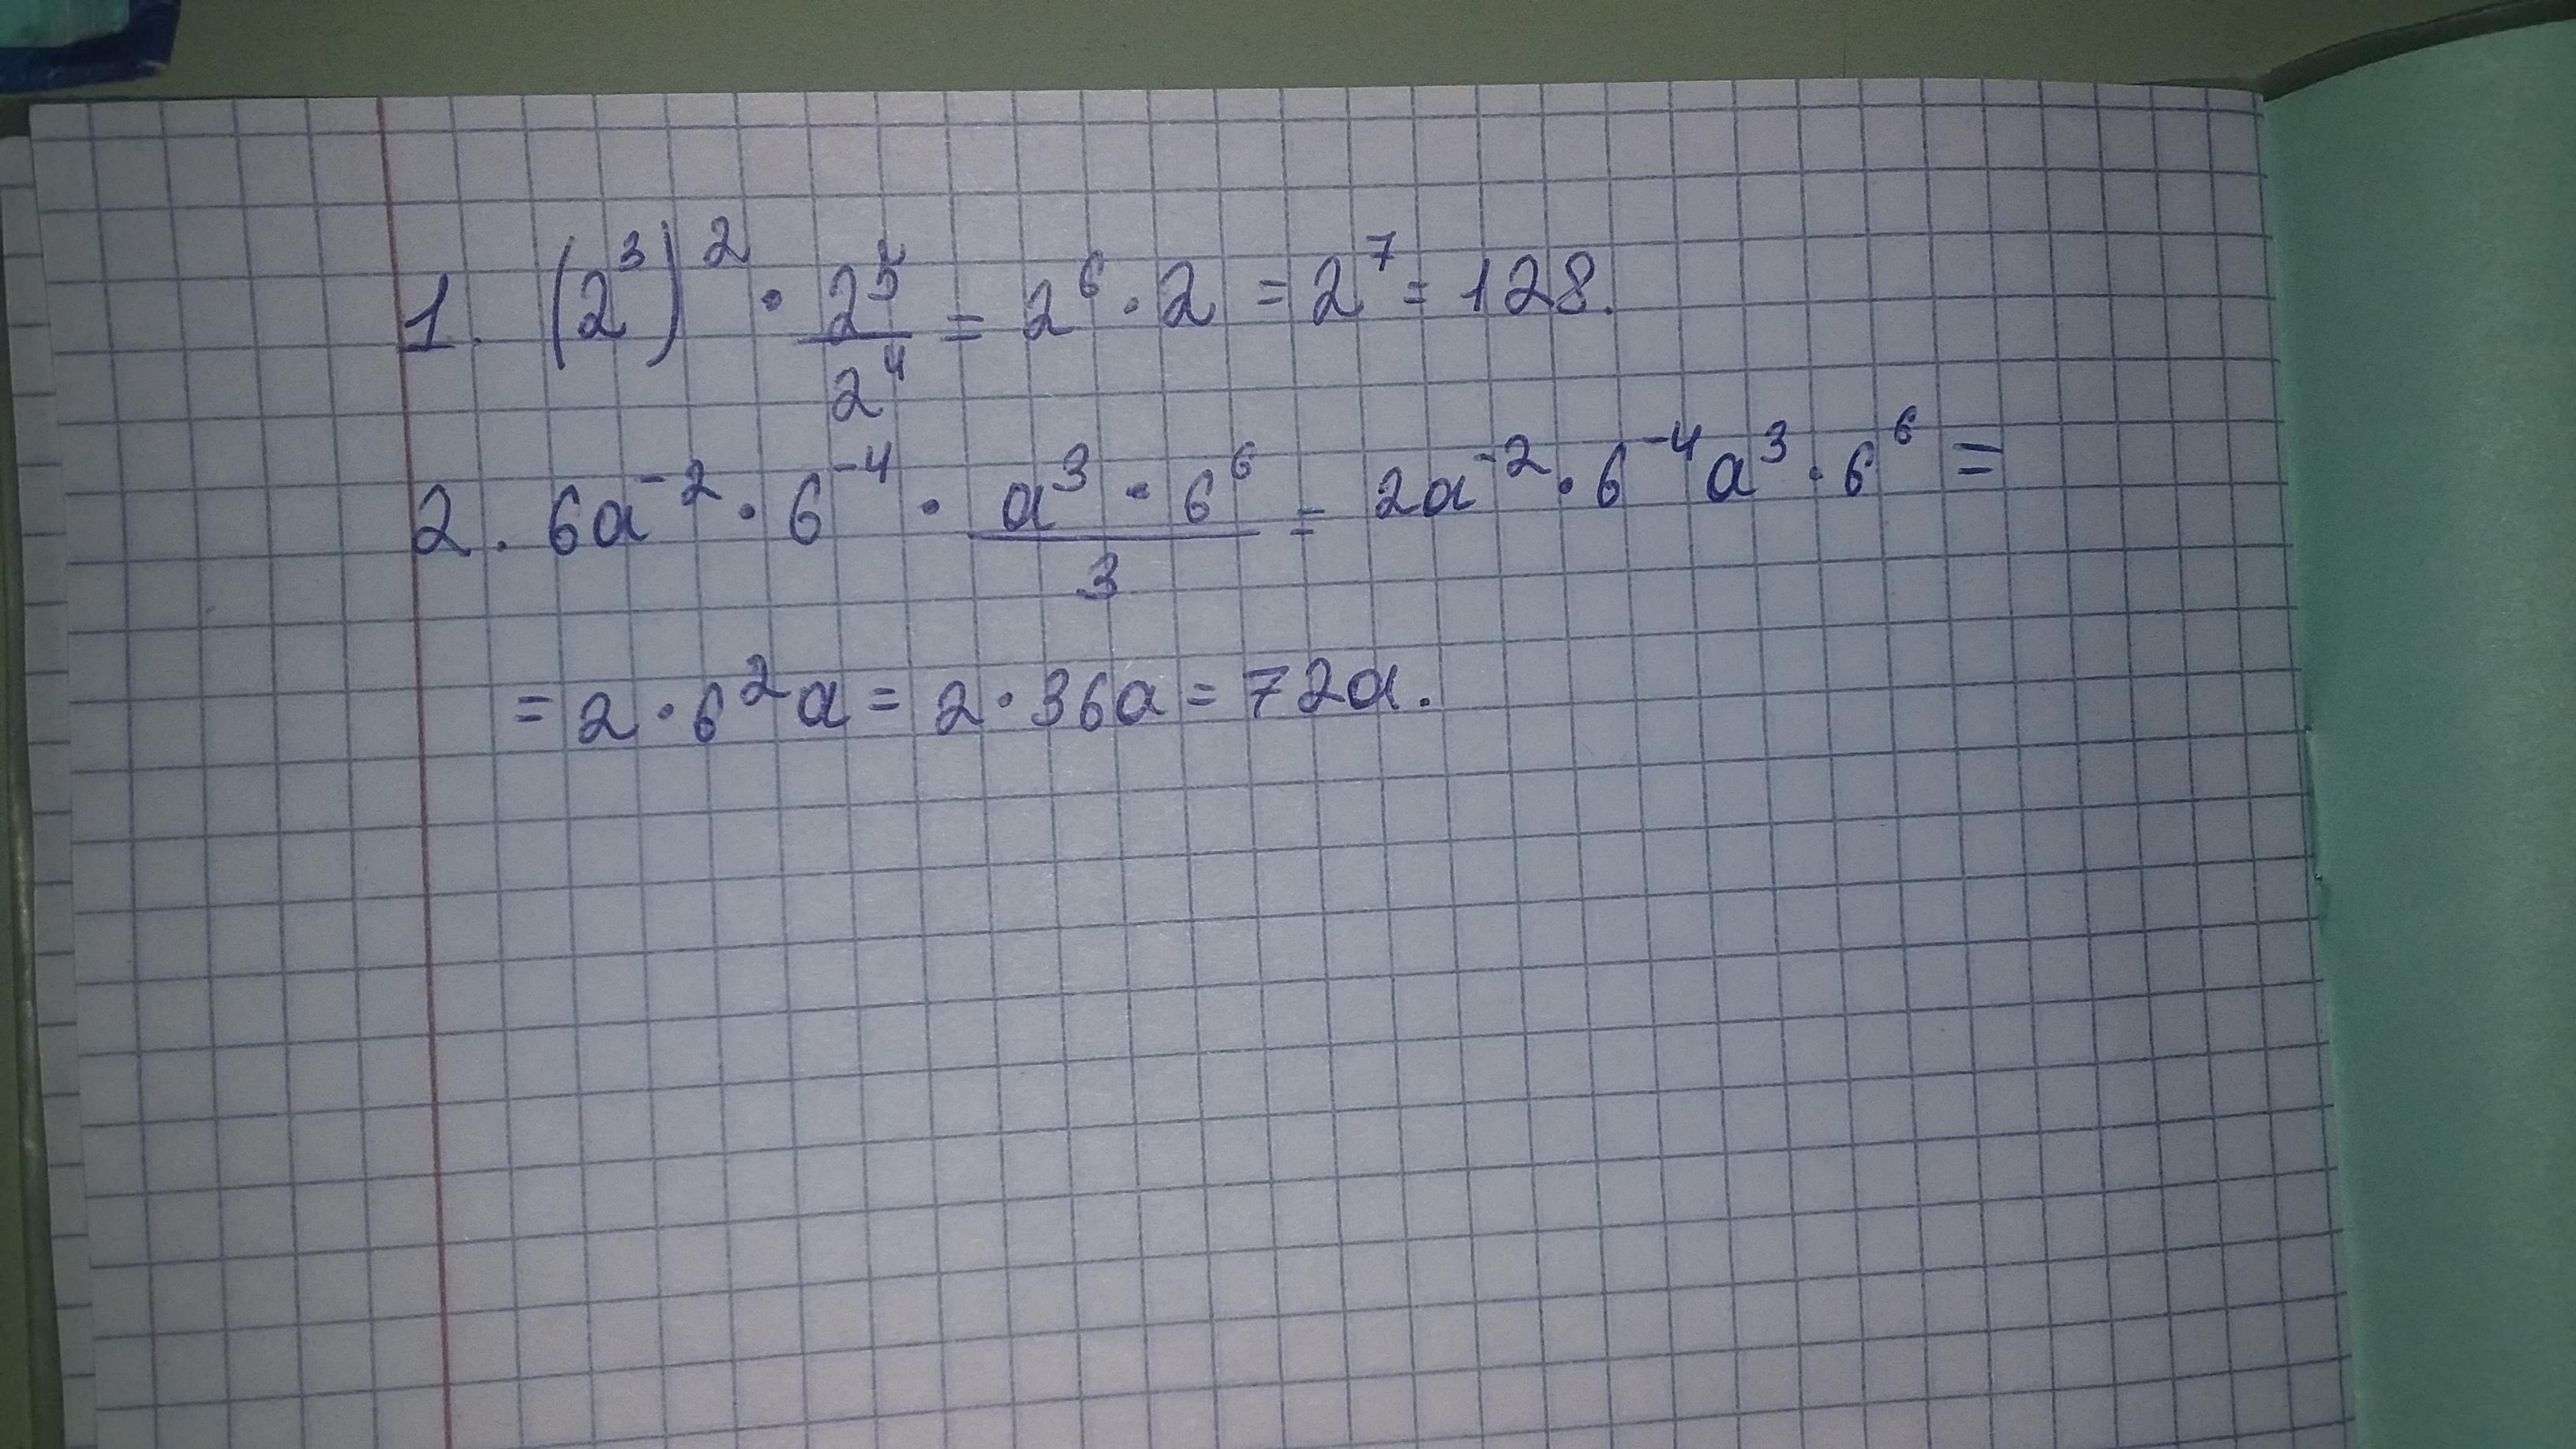 1. (2³)² · 2⁵/2⁴ = 2⁶ · 2 = 2⁷ = 128.
2. 6a⁻² · 6⁻⁴ · (a³ · 6⁶)/3 = 2a⁻² · 6⁻⁴a³ · 6⁶ =
= 2 · 6²a = 2 · 36a = 72a.